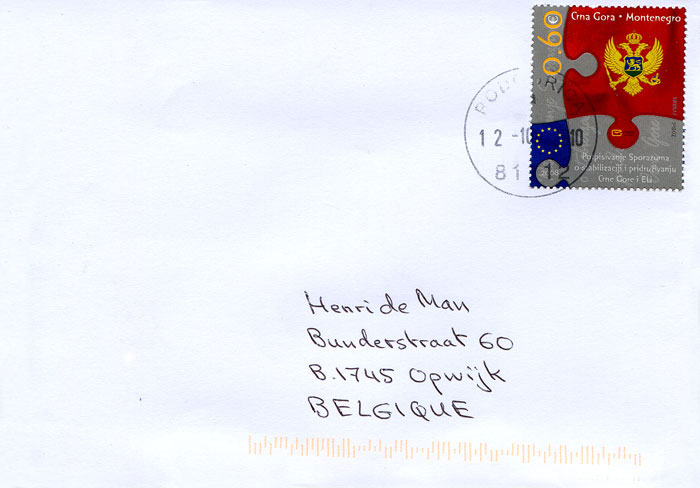 Crna Gora • Montenegro
0.60 €
12 -10 10
81 12
2008
Potpisivanje Sporazuma
o stabilizaciji i pridruživanju
Crne Gore i EU
Henri de Man
Bunderstraat 60
B.1745 Opwijk
BELGIQUE